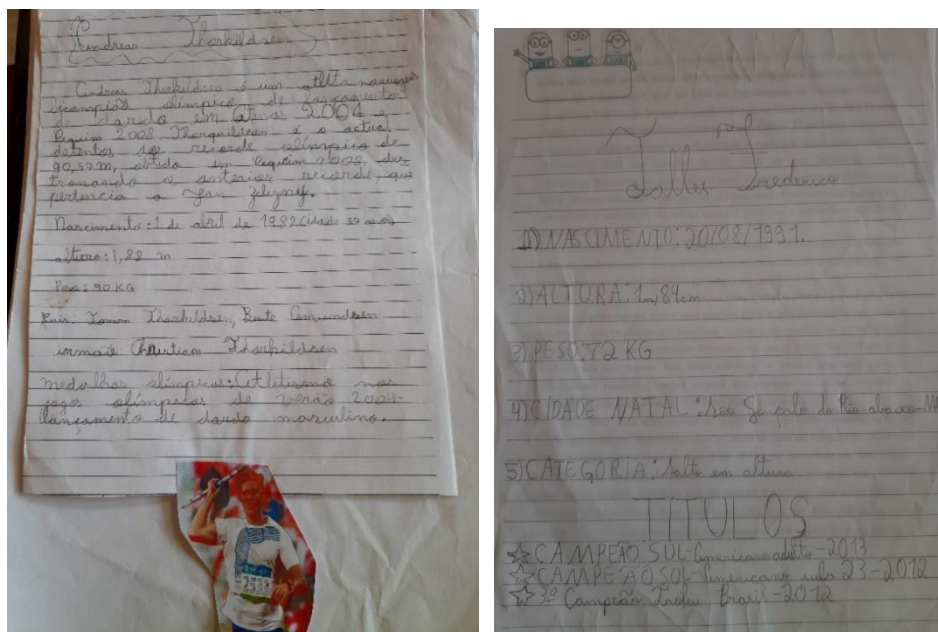 Andreas Thorkildsen
Andreas Thorkildsen é um atleta norueguês
bicampião olímpico de lançamento
de dardo em Atenas 2004 e
Pequim 2008 Thorquildsen é o actual
detentos do recorde olímpico de
90,57m, obtido em Pequim 2008, des
tronando o anterios recorde, que
pertencia a Jan Zelezný.
Nascimento: 1 de abril de 1982 (idade 39 anos)
altura: 1,88 m
Peso: 90 KG
Pais: Thorkildsen, Bente Amundsen
irmão Christian Thorkildsen
medalhas olímpicas: Atletismo nos
jogos olímpicos de verão 2004-
lançamento de dardo masculino.
Talles Frederico
1) NASCIMENTO: 20/08/1991.
2) ALTURA: 1m,84cm
3) PESO: 72 KG
4) CIDADE NATAL: São Go çalo do Rio abaixo-M
5) CATEGORIA: Salto em altura
TITULOS
CAMPEÃO SUL-Americano adulto-2013
CAMPEÃO SUL-Americano sub 23-2012
3º Campeão Trofeu Brasil-2012